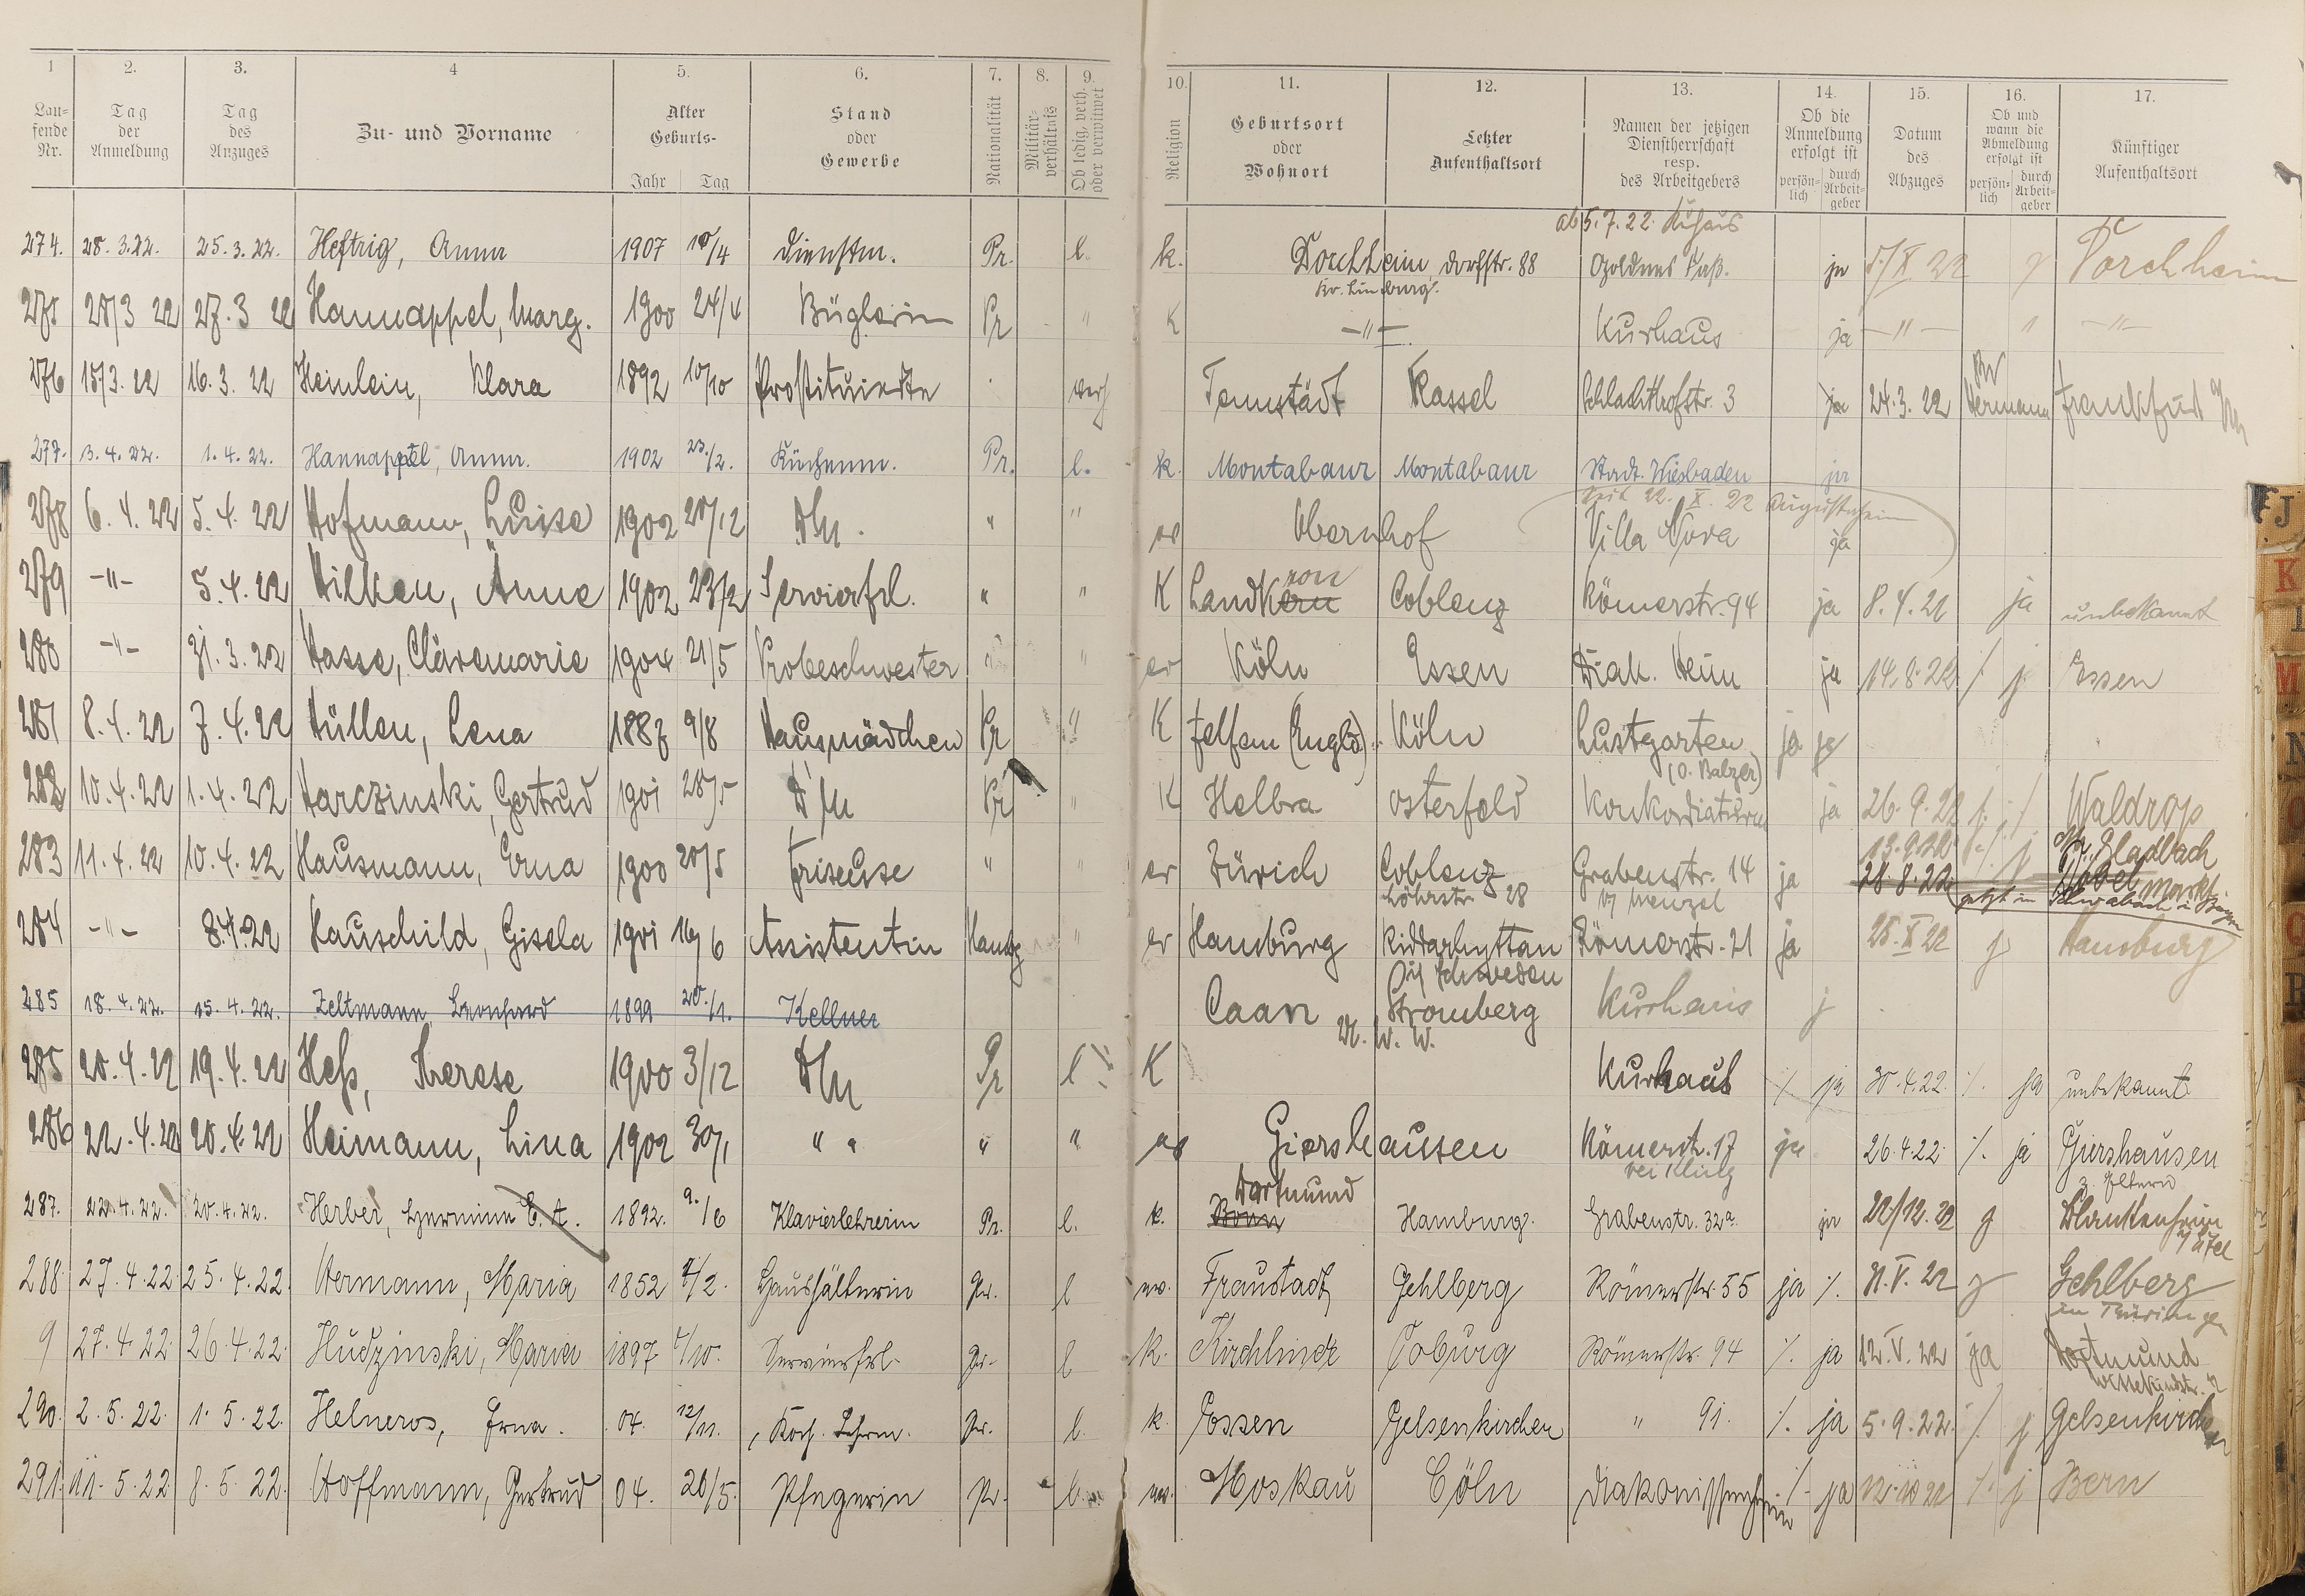 1 2. 3. 4 5. 6. 7. 8. 9. 10. 11. 12. 13. 14. 15. 16. 17.
Lau-fende Nr. Tag der Anmeldung Tag des Anzuges Zu- und Vorname Alter Geburts- Jahr Tag Stand oder Gewerbe Nationalität Militär-verhältnis Ob ledig, verh. oder verwitwet Religion Geburtsort oder Wohnort Letzter Aufenthaltsort Namen der jetzigen Dienstherrschaft resp. des Arbeitgebers Ob die Anmeldung erfolgt ist persön-lich durch Arbeit-geber Datum des Abzuges Ob und wann die Abmeldung erfolgt ist persön-lich durch Arbeit-geber Künftiger Aufenthaltsort
ab 5.7.22 Kurhaus
274. 28.3.22. 25.3.22. Heftrig, Anna 1907 10/4 Dienstm. Pr. l. k. Dorchheim Dorfstr. 88 Goldnes Faß. ja 5/X 22 Dorchheim
Kr. Limburg.
275 28/3 22 27.3 22 Hannappel, Marg. 1900 24/4 Büglerin Pr " K —"— Kurhaus ja —"— —"—
276 15/3. 22 16.3.22 Heinlein, Klara 1892 10/10 Prostituierte verh Tennstädt Kassel Schlachthofstr. 3 ja 24.3.22 Hermann Frankfurt
277. 3.4.22. 1.4.22. Hannappel, Anna. 1902 23./2. Küchenm. Pr. l. k. Montabaur Montabaur Stadt Wiesbaden ja
seit 22. X. 22 Augustaheim
278 6.4.22 5.4.22 Hofmann, Luise 1902 20/12 DM. " " ev Obernhof Villa Nova ja
279 -"- 5.4.22 Hilken, Änne 1902 23/2 Servierfrl. " " K Landkern ron Coblenz Römerstr. 94 ja 8.4.22 ja unbekannt
280 -"- 31.3.22 Hasse, Cläremarie 1904 21/5 Probeschwester " ev Köln Essen Diak. Heim ja 14.8.22 / j Essen
281 8.4.22 7.4.22 Hüllen, Lena 1887 9/8 Hausmädchen Pr " K Köln Lustgarten ja
(O. Balzer)
282 10.4.22 1.4.22 Harczinski, Gertrud 1901 28/5 DM Pr " K Helbra Osterfeld Konkordiaturm ja 26.9.22 Waldrop
283 11.4.22 10.4.22 Hausmann, Erna 1900 20/5 Friseuse " " ev Zürich Coblenz Löhrstr 28 Grabenstr. 14 b/ Menzel ja 13.9.22 28.8.22 Gladbach
jetzt in Schwabach i. Bayern
284 -"- 8.4.22 Hauschild, Gisela 1901 16/6 Assistentin Hambg " ev Hamburg Riddarhyttan i/ Schweden Römerstr. 21 ja 28.X 22 j Hamburg
285 18.4.22. 15.4.22. Zeltmann Leonhard 1899 20./1. Kellner Caan Stromberg Kurhaus j
W. W.
285 20.4.22 19.4.22 Heß, Therese 1900 3/12 DM Pr l K Kurhaus % ja 30.4.22 %. ja unbekannt
286 22.4.22 20.4.22 Heimann, Lina 1902 30/1 " " " " ev Giershausen Römerstr. 17 ja 26.4.22 %. ja Giershausen
z. Eltern
287. 22.4.22. 20.4.22. Herber, Hermine E. A. 1892. 9./6 Klavierlehrerin Pr. l. k. Bonn Dortmund Hamburg. Grabenstr. 32a. ja 22/12.22 j Blankenheim
288. 27.4.22 25.4.22. Hermann, Maria 1852 Haushälterin Pr. l ev. Fraustadt Gehlberg Römerstr. 55 ja %. 31.V.22 Gehlberg
in Thüringen
9 27.4.22. 26.4.22. Hudzinski, Maria 1897 Servierfrl. Pr. l k. Kirchlinde Coburg Römerstr. 94 %. ja 12.V.22 ja Dortmund
290. 2.5.22. 1.5.22. Helneros, Erna. 04. 12/11. Pr. l. k. Essen Gelsenkirchen " 91. %. ja 5.9.22. %. j Gelsenkirchen
291. 11.5.22 8.5.22. Hoffmann, Gertrud 04. 20/5. Pflegerin Pr. l. ev. Moskau Cöln Diakonissenheim % ja %. j Bern
J
K
M
N
O
R